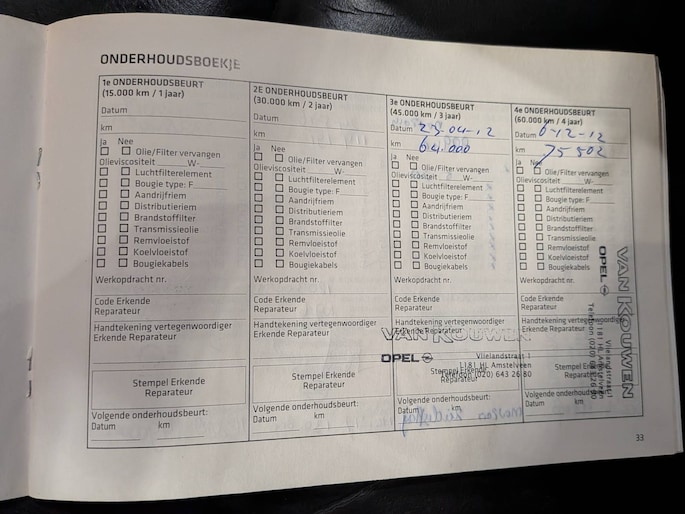 ONDERHOUDSBOEKJE
1e ONDERHOUDSBEURT
(15.000 km / 1 jaar)
Datum
km
Ja Nee
Olie/Filter vervangen
Olieviscositeit W-
Luchtfilterelement
Bougie type: F
Aandrijfriem
Distributieriem
Brandstoffilter
Transmissieolie
Remvloeistof
Koelvloeistof
Bougiekabels
Werkopdracht nr.
Code Erkende
Reparateur
Handtekening vertegenwoordiger
Erkende Reparateur
Stempel Erkende
Reparateur
Volgende onderhoudsbeurt:
Datum km
2E ONDERHOUDSBEURT
(30.000 km / 2 jaar)
Datum
km
Ja Nee
Olie/Filter vervangen
Olieviscositeit W-
Luchtfilterelement
Bougie type: F
Aandrijfriem
Distributieriem
Brandstoffilter
Transmissieolie
Remvloeistof
Koelvloeistof
Bougiekabels
Werkopdracht nr.
Code Erkende
Reparateur
Handtekening vertegenwoordiger
Erkende Reparateur
Stempel Erkende
Reparateur
Volgende onderhoudsbeurt:
Datum km
3e ONDERHOUDSBEURT
(45.000 km / 3 jaar)
Datum 23-04-12
km 64.000
Ja Nee
Olie/Filter vervangen
Olieviscositeit W-
Luchtfilterelement
Bougie type: F
Aandrijfriem
Distributieriem
Brandstoffilter
Transmissieolie
Remvloeistof
Koelvloeistof
Bougiekabels
Werkopdracht nr.
Code Erkende
Reparateur
Handtekening vertegenwoordiger
Erkende Reparateur
VAN KOUWEN
OPEL Vlielandstraat 1
1181 HL Amstelveen
Telefoon (020) 643 26 80
Stempel Erkende
Reparateur
Volgende onderhoudsbeurt:
Datum km
4e ONDERHOUDSBEURT
(60.000 km / 4 jaar)
Datum 6-12-12
km 75502
Ja Nee
Olie/Filter vervangen
Olieviscositeit W-
Luchtfilterelement
Bougie type: F
Aandrijfriem
Distributieriem
Brandstoffilter
Transmissieolie
Remvloeistof
Koelvloeistof
Bougiekabels
Werkopdracht nr.
Code Erkende
Reparateur
Handtekening vertegenwoordiger
Erkende Reparateur
Stempel Erkende
Reparateur
Volgende onderhoudsbeurt:
Datum km
VAN KOUWEN
OPEL
33